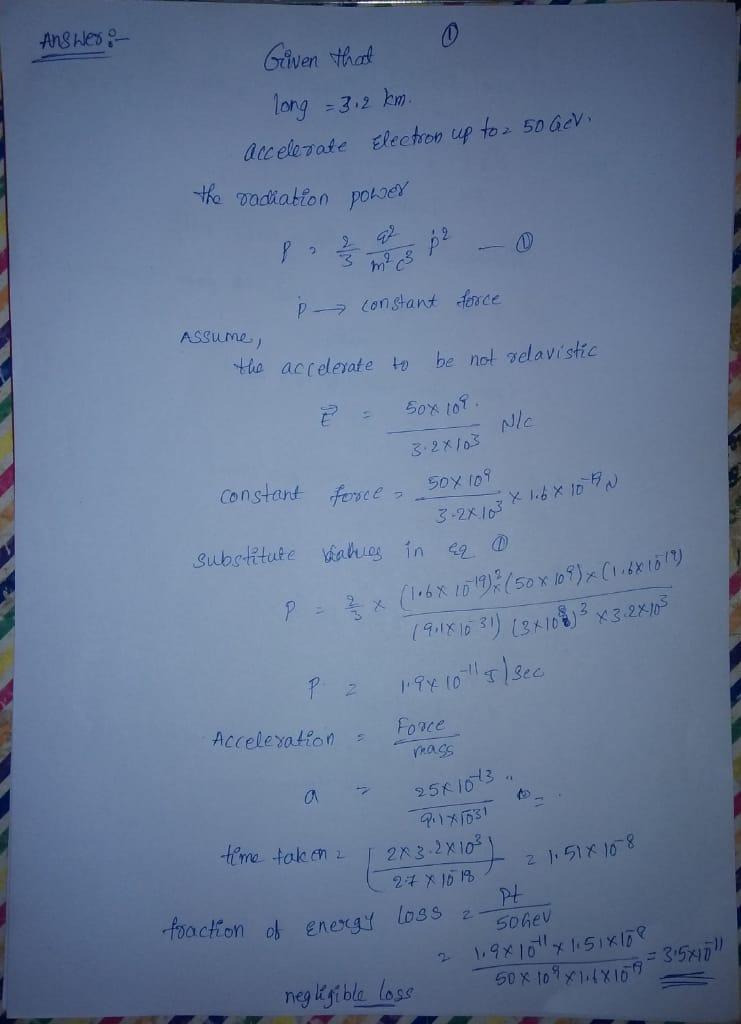 Answer:-
①
Given that
long = 3.2 km.
accelerate Electron up to = 50 GeV.
the radiation power
P = 2/3 q²/m²c³ ṗ² — ①
ṗ → constant force
Assume,
the accelerate to be not relavistic
E⃗ = 50×10⁹/3.2×10³ N/C
constant force = 50×10⁹/3.2×10³ × 1.6×10⁻¹⁹ N
substitute values in eq ①
P = 2/3 × (1.6×10⁻¹⁹)²×(50×10⁹)×(1.6×10⁻¹⁹)/(9.1×10⁻³¹) (3×10⁸)³ ×3.2×10³
P = 1.9×10⁻¹¹ J/sec
Acceleration = Force/mass
a = 25×10⁻¹³/9.1×10⁻³¹
time taken = [2×3.2×10³/2.7×10¹⁸] = 1.51×10⁻⁸
fraction of energy loss = Pt/50GeV
= 1.9×10⁻¹¹×1.51×10⁻⁸/50×10⁹×1.6×10⁻¹⁹ = 3.5×10⁻¹¹
negligible loss